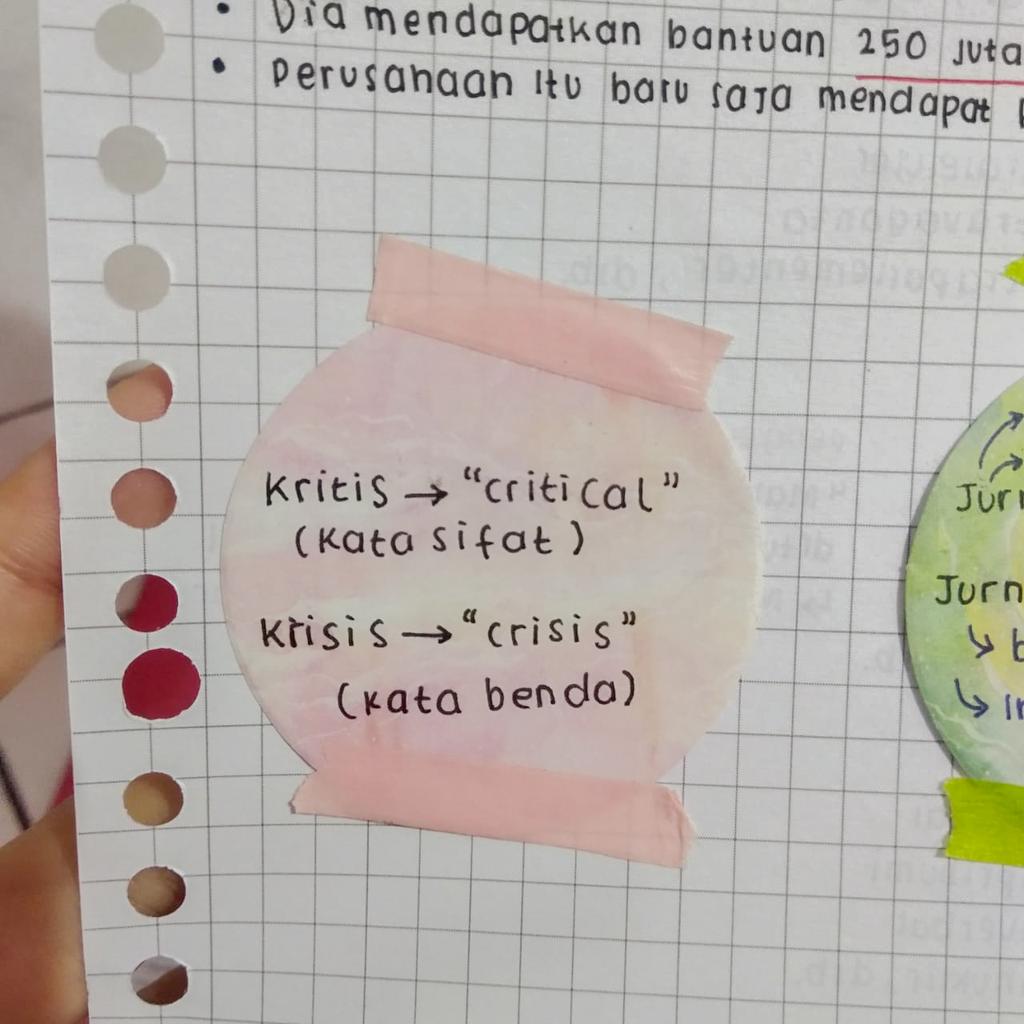 • Dia mendapatkan bantuan 250 juta
• perusahaan itu baru saja mendapat
kritis → "critical"
(kata sifat)
krisis → "crisis"
(kata benda)